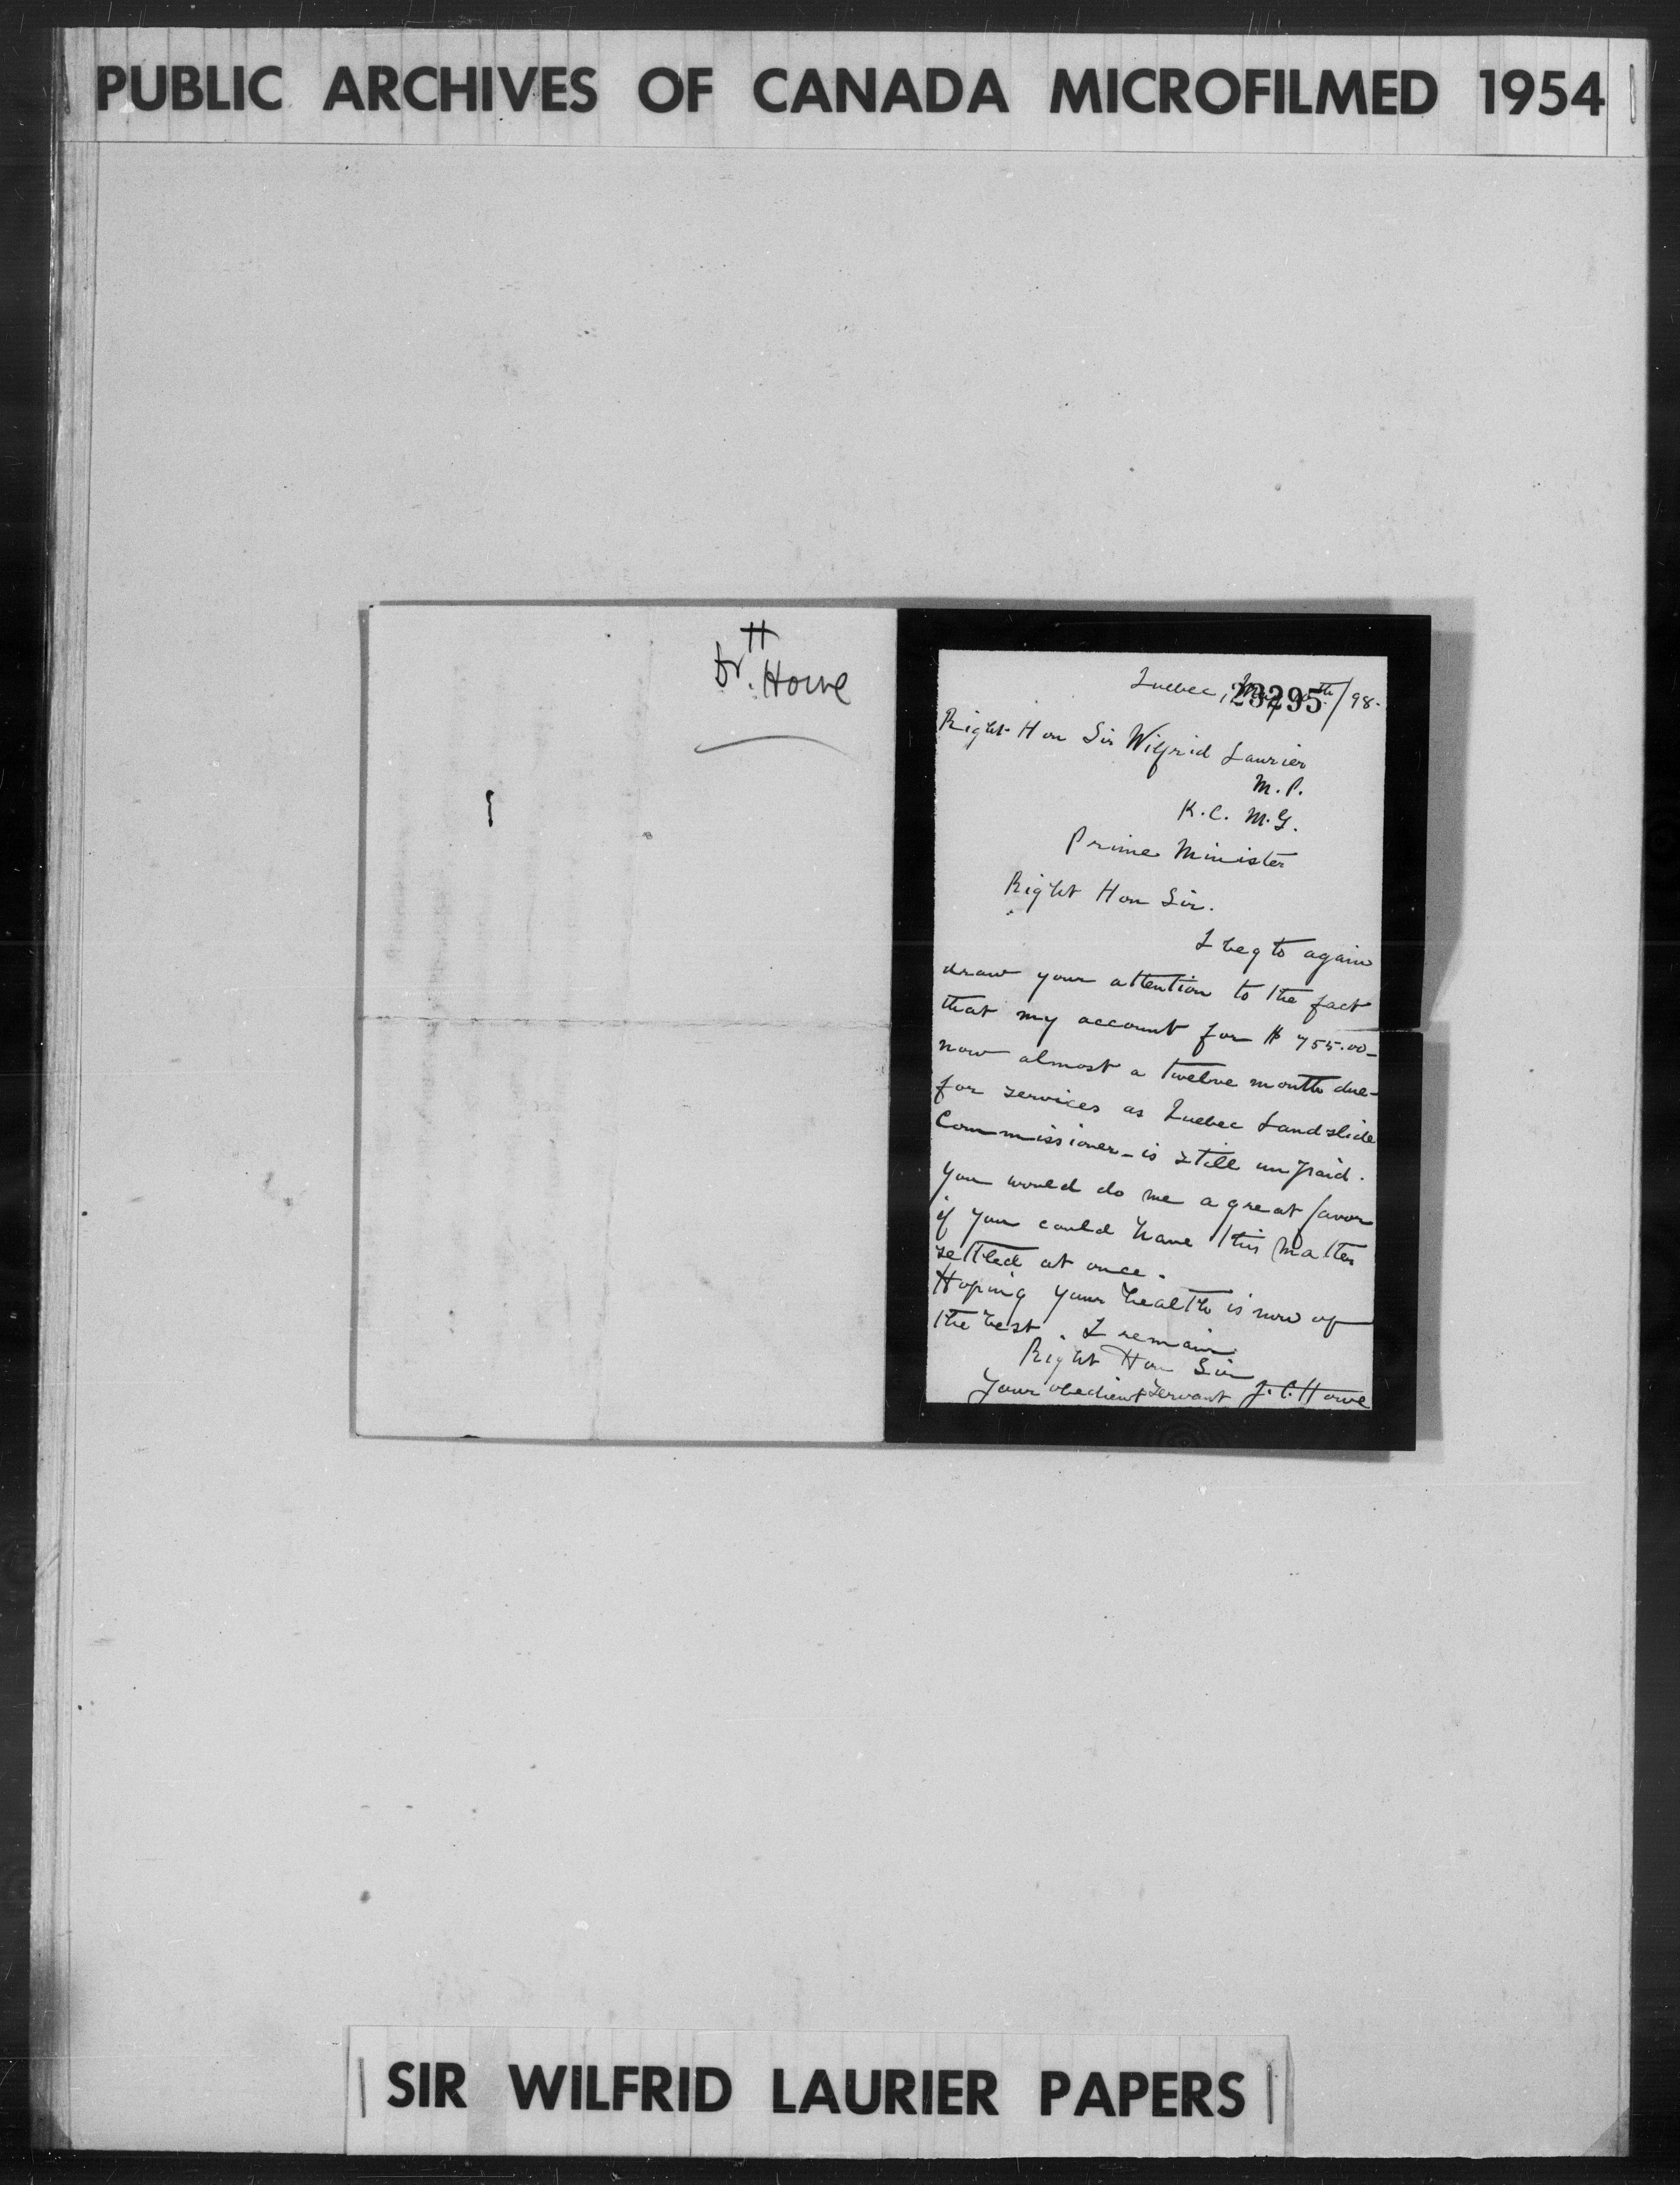 PUBLIC ARCHIVES OF CANADA MICROFILMED 1954
H
Dr. Howe
Quebec, th/98.
23295
Right Hon Sir Wilfrid Laurier
M.P.
K.C.M.G.
Prime Minister
Right Hon Sir.
I beg to again
draw your attention to the fact
that my account for $755.00–
now almost a twelve month due–
for services as Quebec Landslide
Commissioner – is still unpaid.
You would do me a great favor
if you could have this matter
settled at once.
Hoping your health is now of
the best. I remain
Right Hon Sir
Your obedient servant J.C. Howe
SIR WILFRID LAURIER PAPERS